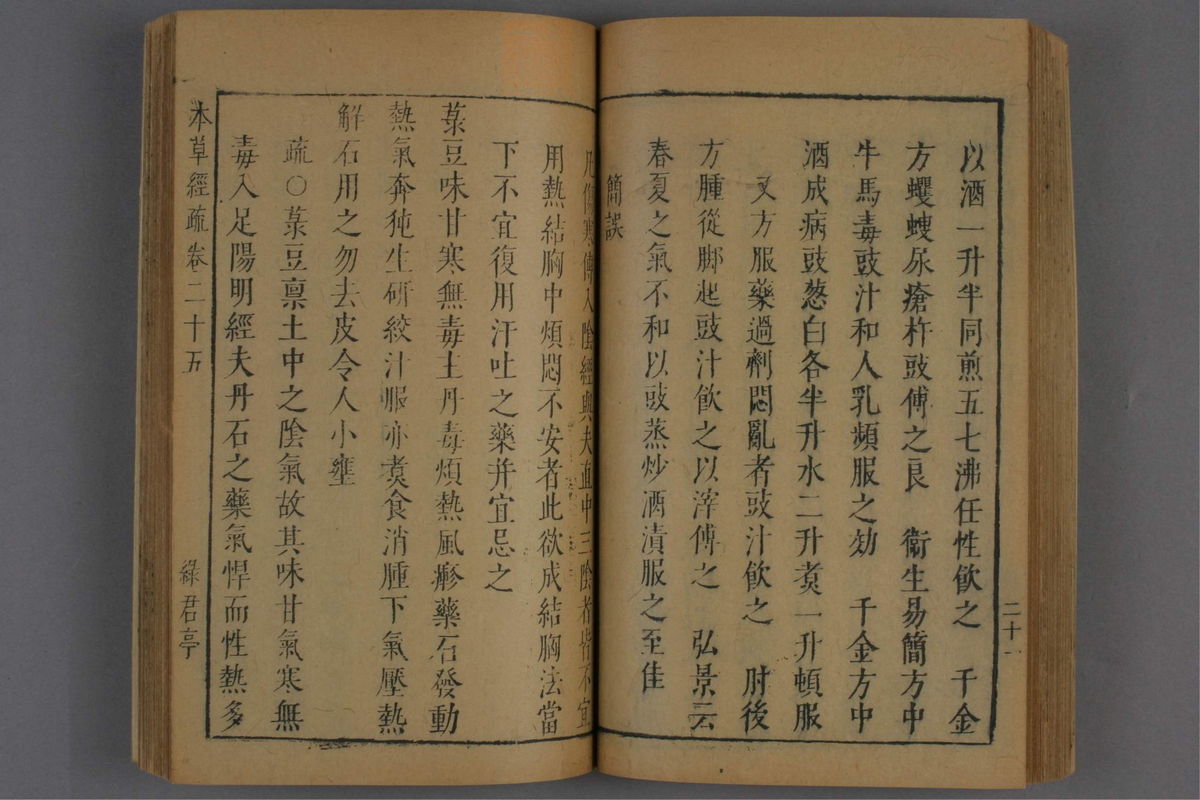 以酒一升半同煎五七沸任性飲之　千金
方蠼螋尿瘡杵豉傅之良　衞生易簡方中
牛馬毒豉汁和人乳頻服之効　千金方中
酒成病豉葱白各半升水二升煮一升頓服
又方服藥過劑悶亂者豉汁飲之　肘後
方腫從脚起豉汁飲之以滓傅之　弘景云
春夏之氣不和以豉蒸炒酒漬服之至佳
簡誤
二十一
凡傷寒傳入陰經與夫直中三陰者皆不宜
用熱結胸中煩悶不安者此欲成結胸法當
下不宜復用汗吐之藥并宜忌之
菉豆味甘寒無毒主丹毒煩熱風疹藥石發動
熱氣奔㹠生研絞汁服亦煮食消腫下氣壓熱
解石用之勿去皮令人小壅
疏○菉豆禀土中之陰氣故其味甘氣寒無
毒入足陽明經夫丹石之藥氣悍而性熱多
本草經疏卷二十五
綠君亭